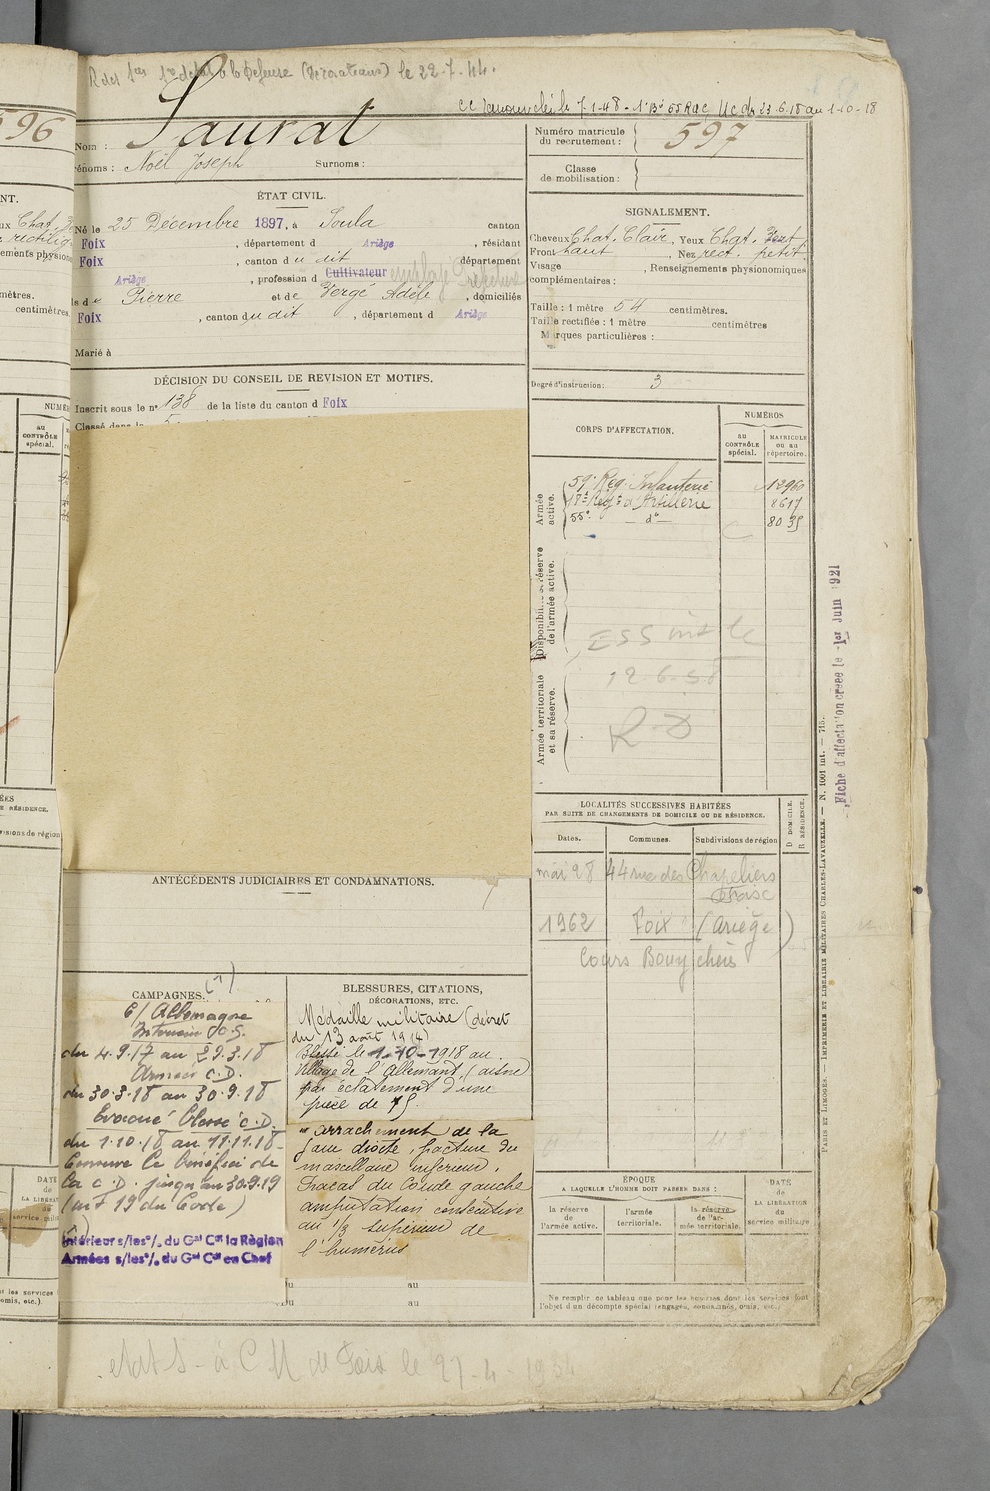 le 22-7-44.
cc renouvelée le 7-1-48 - 55 RAC du 23-6-18 au 1-10-18
596
Nom : Saurat
Prénoms : Noël Joseph Surnoms :
Numéro matricule du recrutement : 597
Classe de mobilisation :
ÉTAT CIVIL.
Né le 25 Décembre 1897, à Soula canton
Foix, département d Ariège, résidant
Foix, canton du dit département
Ariège, profession d Cultivateur
fils de Pierre et de Vergé Adèle, domiciliés
Foix, canton du dit, département d Ariège
Marié à
SIGNALEMENT.
Cheveux Chat. Clair, Yeux Chat. Vert
Front haut, Nez rect. petit
Visage , Renseignements physionomiques
complémentaires :
Taille : 1 mètre 54 centimètres.
Taille rectifiée : 1 mètre centimètres
Marques particulières :
Degré d'instruction : 3
DÉCISION DU CONSEIL DE REVISION ET MOTIFS.
Inscrit sous le n° 138 de la liste du canton d Foix
Classé dans la
CORPS D'AFFECTATION.
NUMÉROS
au CONTRÔLE spécial.
MATRICULE ou au répertoire.
Armée active.
59e Rég. Infanterie 12960
18e Régt d'Artillerie 8617
55e - d° - 8035
Disponibilité et réserve de l'armée active.
12-6-58
Armée territoriale et sa réserve.
R-D
Fiche d'affectation créée le 1er Juin 1921
LOCALITÉS SUCCESSIVES HABITÉES
PAR SUITE DE CHANGEMENTS DE DOMICILE OU DE RÉSIDENCE.
Dates. Communes. Subdivisions de région
D DOMICILE.
R RÉSIDENCE.
mai 28 44 rue des Chapeliers
1962 Foix (Ariège)
Cours Bouychères
ANTÉCÉDENTS JUDICIAIRES ET CONDAMNATIONS.
CAMPAGNES. (1)
C/ Allemagne
Intérieur C.S.
du 4.9.17 au 29.3.18
Armées C.D.
du 30.3.18 au 30.9.18
Evacué blessé C.D.
du 1.10.18 au 11.11.18
Conserve le bénéfice de
la C.D. jusqu'au 30.9.19
(art 19 du Code)
(1)
Intérieur s/les o/. du Gal Ct la Région
Armées s/les o/. du Gal Ct en Chef
BLESSURES, CITATIONS,
DÉCORATIONS, ETC.
Médaille militaire (décret
du 13 août 1914)
Blessé le 1-10-1918 au
village de l'Allemant, (aisne
par éclatement d'une
pièce de 75.
"arrachement de la
face droite, fracture du
maxillaire inférieur,
fracas du coude gauche
amputation consécutive
au 1/3 supérieur de
l'humérus
Du au
au
ÉPOQUE
A LAQUELLE L'HOMME DOIT PASSER DANS :
la réserve de l'armée active.
l'armée territoriale.
la réserve de l'armée territoriale.
DATE de LA LIBÉRATION du service militaire
Ne remplir ce tableau que pour les hommes dont les services font
l'objet d'un décompte spécial (engagés, condamnés, omis, etc.).
PARIS ET LIMOGES. — IMPRIMERIE ET LIBRAIRIE MILITAIRES CHARLES-LAVAUZELLE. — N. 1001 int. — 715.
le 27-4-1934